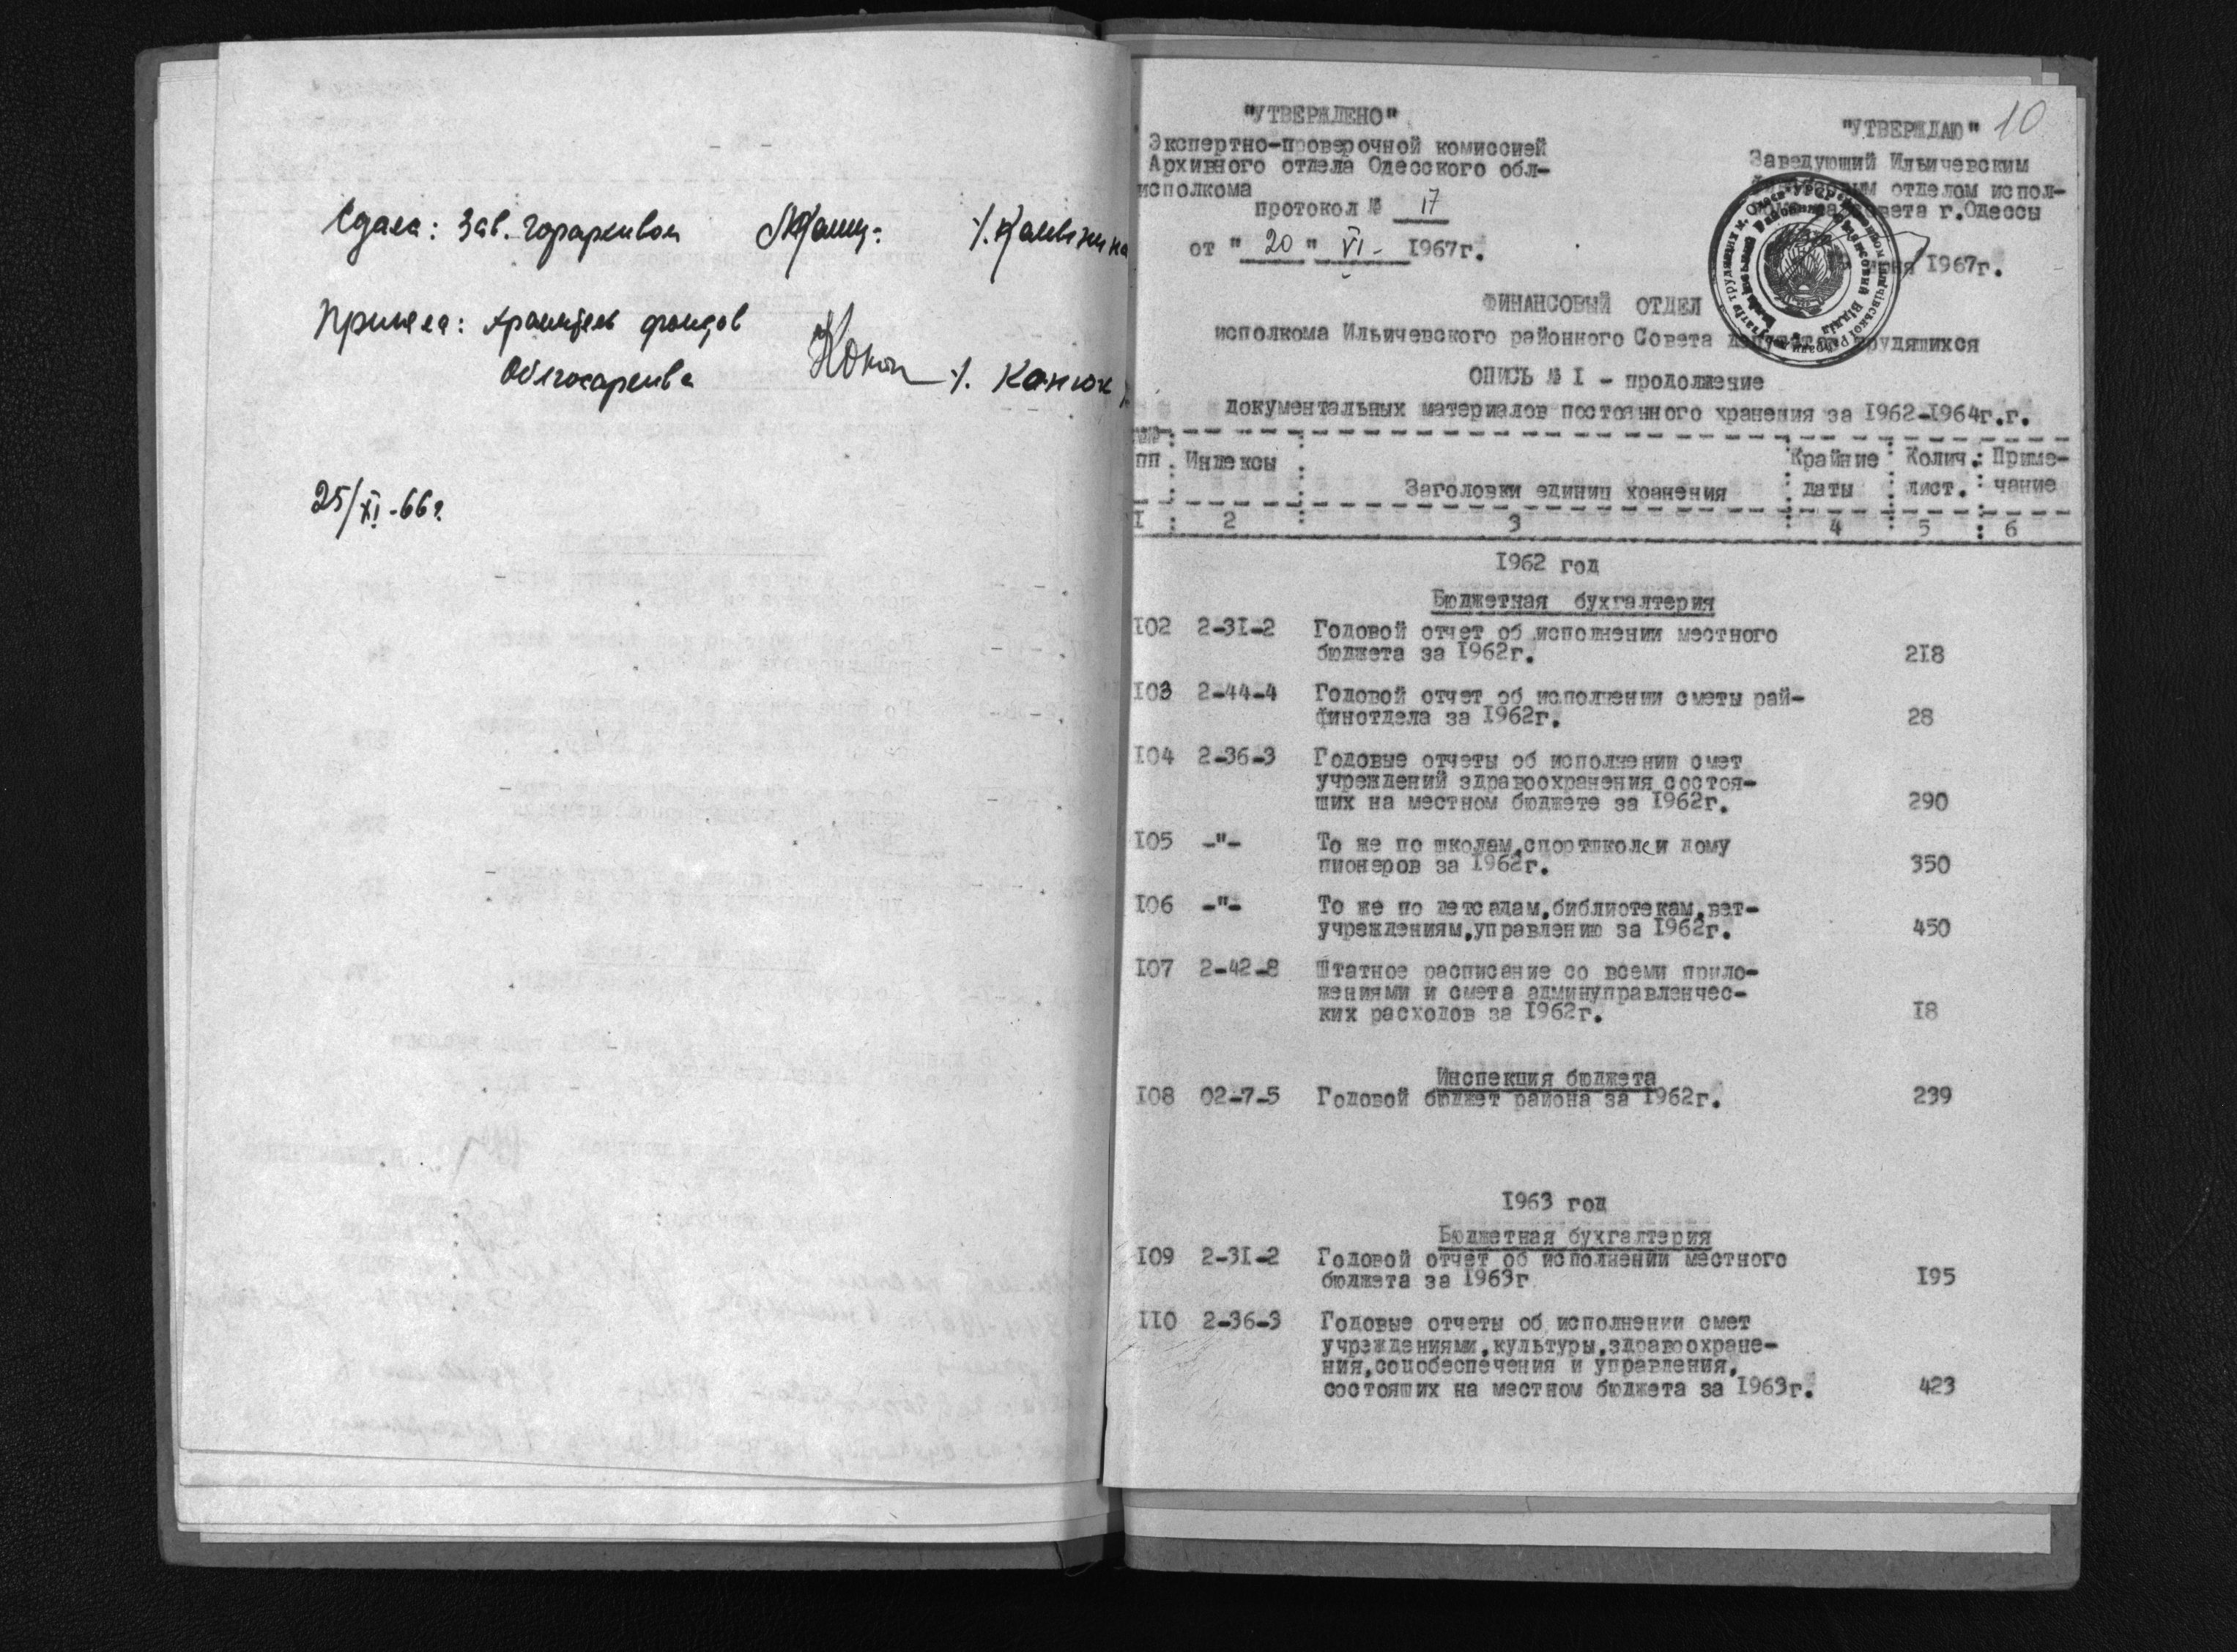 Сдала: Зав. Горархивом
Приняла: хранитель фондов
Облгосархива /. Канюк /
25/XI-66г.
10
"УТВЕРЖДЕНО"
Экспертно-проверочной комиссией
Архивного отдела Одесского обл-
исполкома
протокол № 17
от "20" VI- 1967г.
"УТВЕРЖДАЮ"
Заведующий Ильичевским
отделом испол-
г.Одессы
1967г.
ФИНАНСОВЫЙ ОТДЕЛ
исполкома Ильичевского районного Совета депутатов трудящихся
ОПИСЬ № I - продолжение
документальных материалов постоянного хранения за 1962-1964г.г.
№№ пп : Индексы : Заголовки единиц хранения : Крайние даты : Колич. лист. : Приме-чание
I : 2 : 3 : 4 : 5 : 6
1962 год
Бюджетная бухгалтерия
I02 2-3I-2 Годовой отчет об исполнении местного
бюджета за 1962г. 2I8
I03 2-44-4 Годовой отчет об исполнении сметы рай-
финотдела за 1962г. 28
I04 2-36-3 Годовые отчеты об исполнении смет
учреждений здравоохранения состоя-
щих на местном бюджете за 1962г. 290
I05 -"- То же по школам,спортшколе и дому
пионеров за 1962г. 350
I06 -"- То же по детсадам,библиотекам,вет-
учреждениям,управлению за 1962г. 450
I07 2-42-8 Штатное расписание со всеми прило-
жениями и смета админуправленчес-
ких расходов за 1962г. I8
Инспекция бюджета
I08 02-7-5 Годовой бюджет района за 1962г. 239
1963 год
Бюджетная бухгалтерия
I09 2-3I-2 Годовой отчет об исполнении местного
бюджета за 1963г I95
II0 2-36-3 Годовые отчеты об исполнении смет
учреждениями,культуры,здравоохране-
ния,соцобеспечения и управления,
состоящих на местном бюджета за 1963г. 423